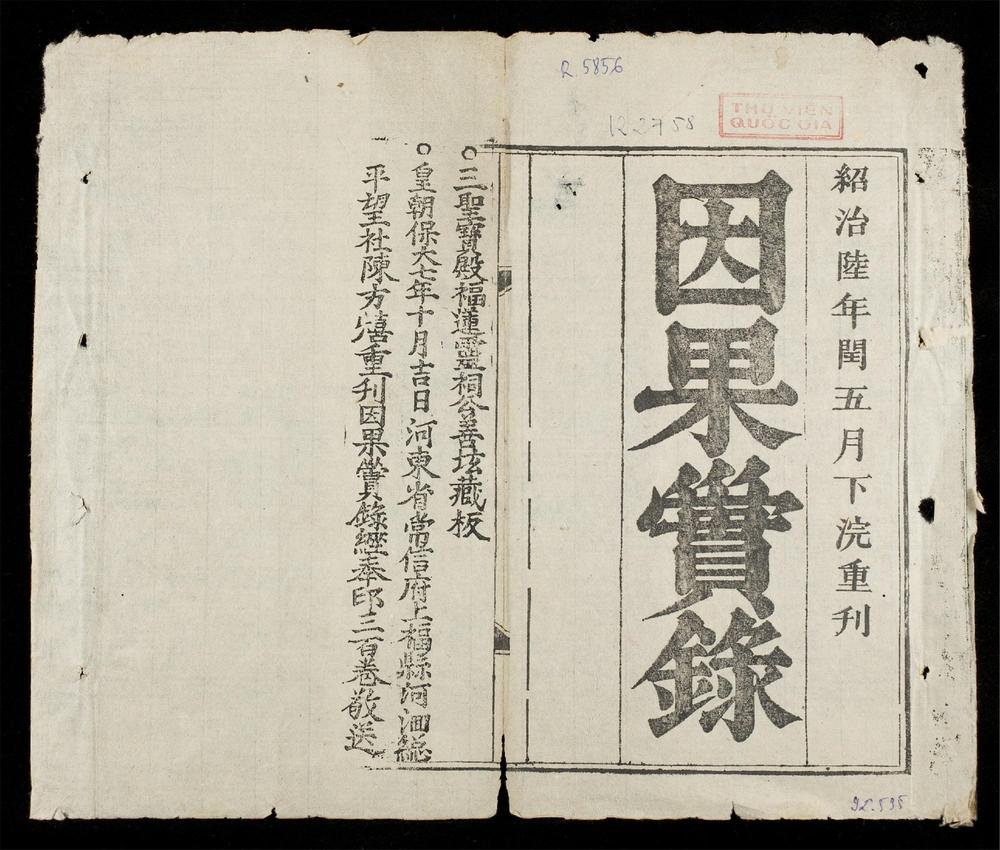 R.5856
122758
THƯ VIỆN
QUỐC GIA
紹治陸年閏五月下浣重刊
因果實錄
三聖寶殿福蓮靈祠公善坛藏板
皇朝保大七年十月吉日河東省常信府上福縣河洄總
平望社陳方熺重刊因果實錄經奉印三百卷敬送